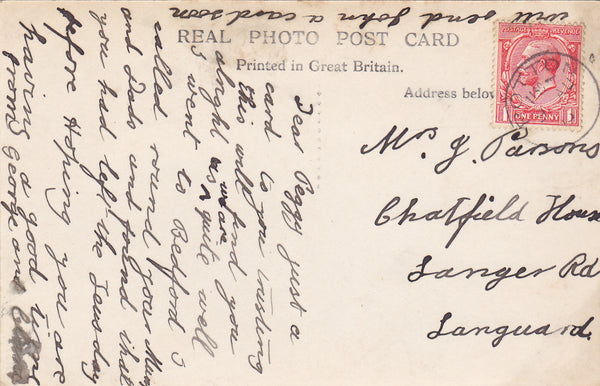 will send John a card soon
REAL PHOTO POST CARD
Printed in Great Britain.
Address below
POSTAGE REVENUE
1 1
ONE PENNY
Dear Peggy just a
card to you trusting
this will find you
alright as we are quite well
I went to Bedford I
called round your Mums
and Dads and found that
you had left the Tuesday
before Hoping you are
having a good time
from George and
Mrs J. Parsons
Chatfield House
Langer Rd
Languard.